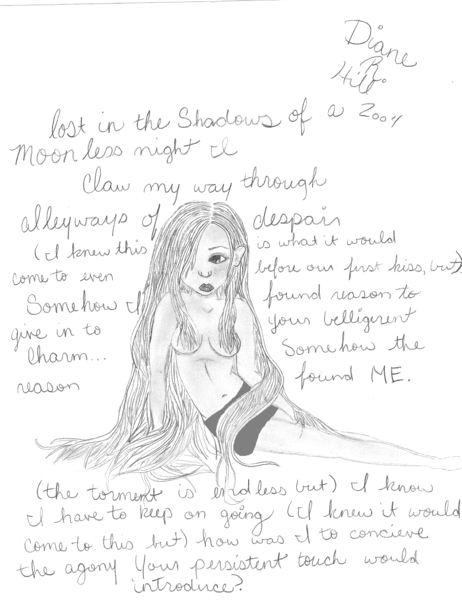 Diane
R.
Hill.
2004
lost in the Shadows of a
Moonless night I
Claw my way through
alleyways of despair
(I knew this is what it would
come to even before our first kiss, but)
Somehow I found reason to
give in to your belligerent
Charm... Somehow the
reason found ME.
(the torment is endless but) I know
I have to keep on going (I knew it would
come to this but) how was I to concieve
the agony your persistent touch would
introduce?